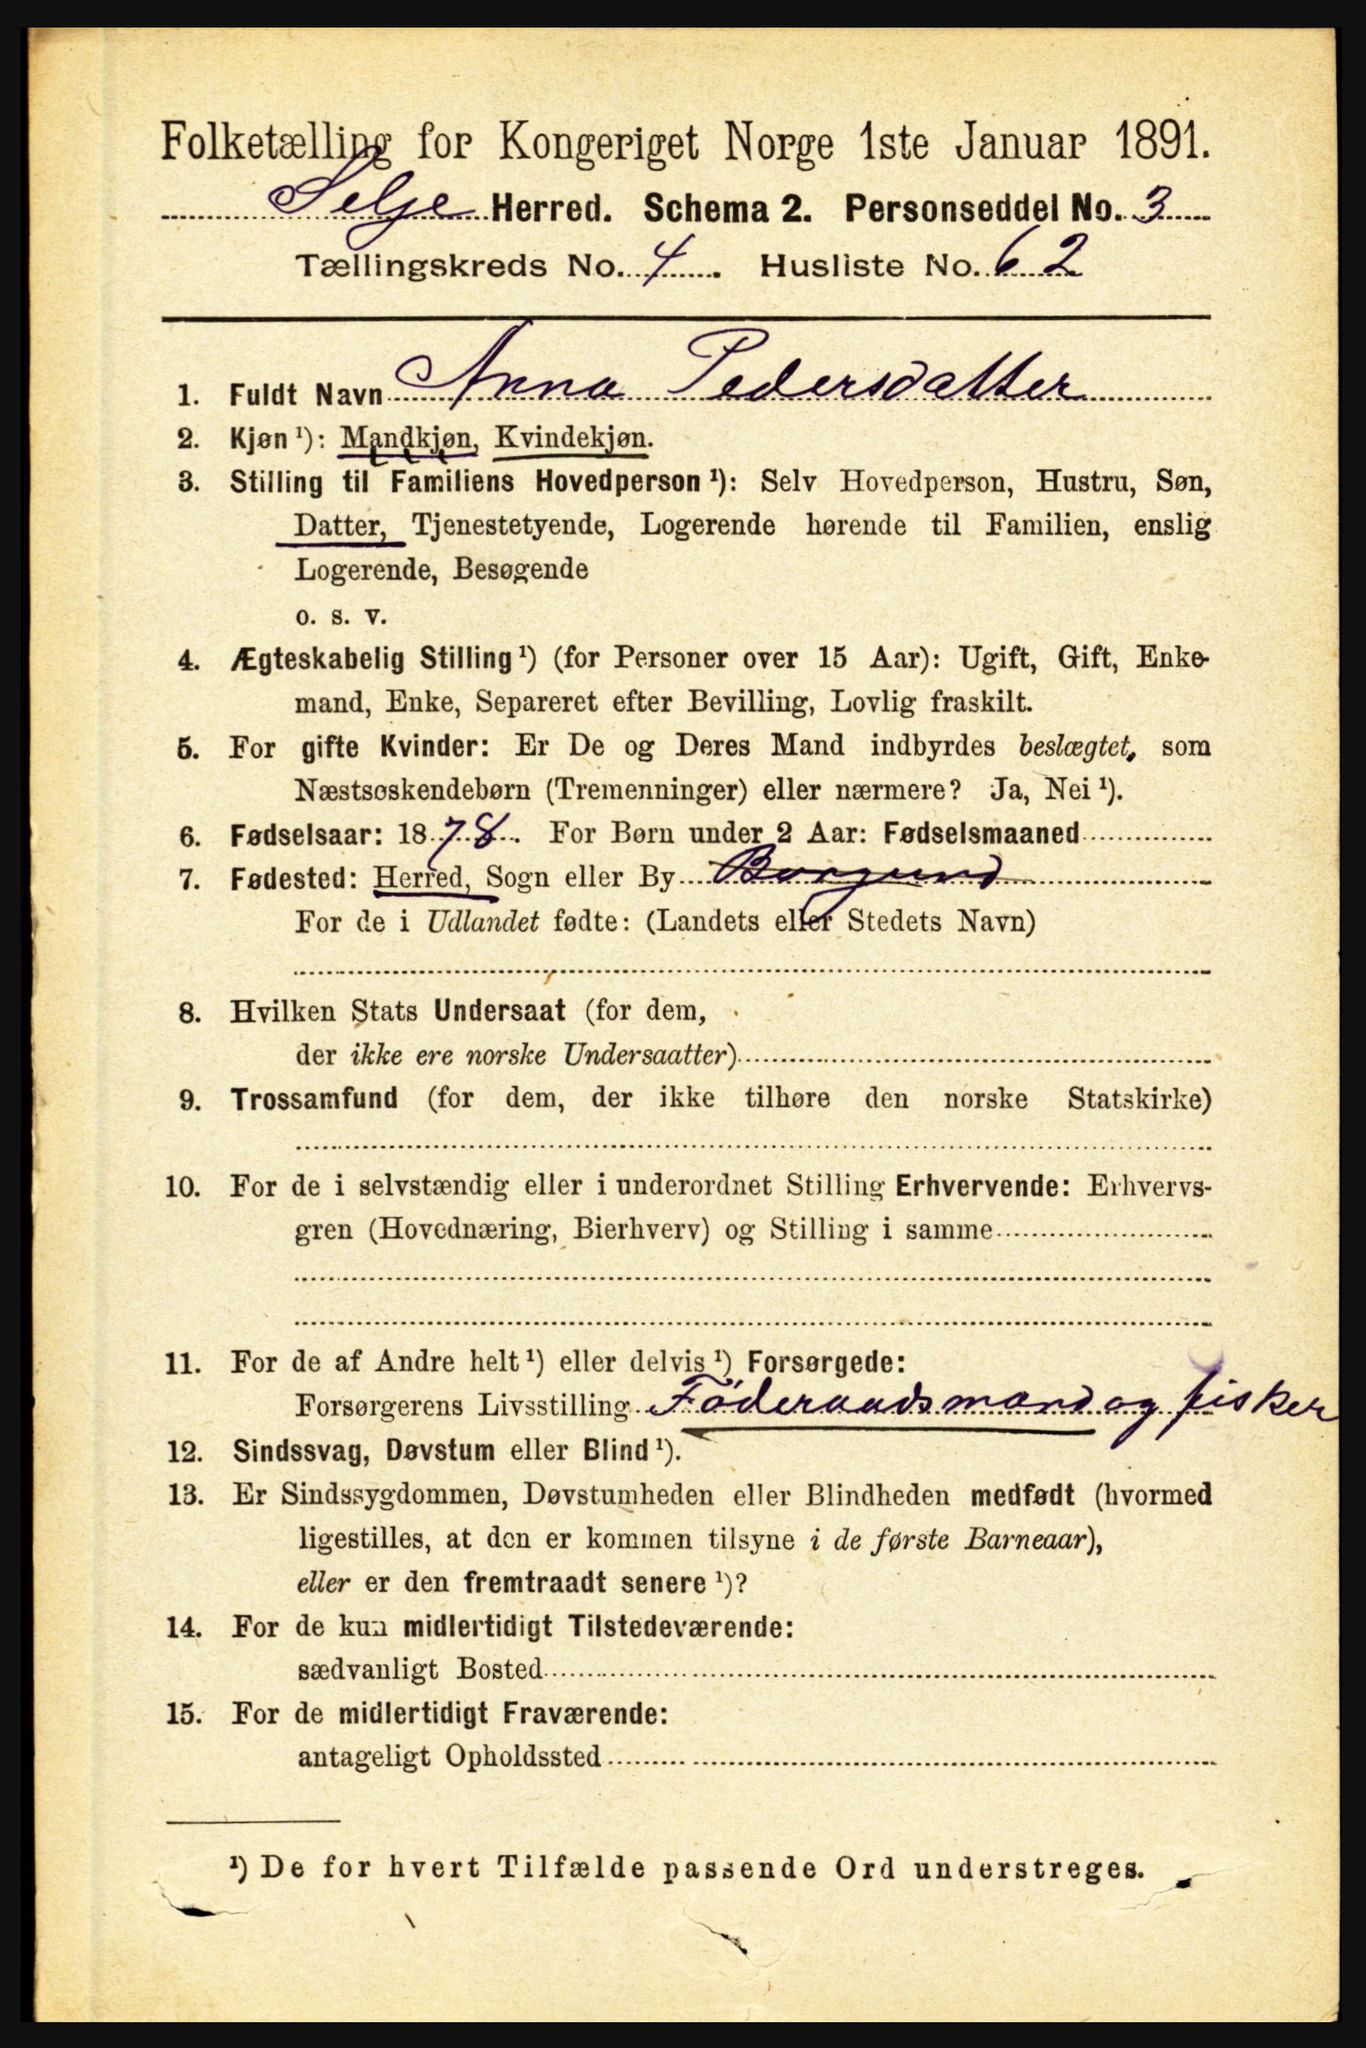 Folketælling for Kongeriget Norge 1ste Januar 1891.
Selje Herred. Schema 2. Personseddel No. 3
Tællingskreds No. 4. Husliste No. 62
1. Fuldt Navn Anna Pedersdatter
2. Kjøn ¹): Mandkjøn, Kvindekjøn.
3. Stilling til Familiens Hovedperson ¹): Selv Hovedperson, Hustru, Søn,
Datter, Tjenestetyende, Logerende hørende til Familien, enslig
Logerende, Besøgende
o. s. v.
4. Ægteskabelig Stilling ¹) (for Personer over 15 Aar): Ugift, Gift, Enke-
mand, Enke, Separeret efter Bevilling, Lovlig fraskilt.
5. For gifte Kvinder: Er De og Deres Mand indbyrdes beslægtet, som
Næstsøskendebørn (Tremenninger) eller nærmere? Ja, Nei ¹).
6. Fødselsaar: 1878. For Børn under 2 Aar: Fødselsmaaned
7. Fødested: Herred, Sogn eller By Borgund
For de i Udlandet fødte: (Landets eller Stedets Navn)
8. Hvilken Stats Undersaat (for dem,
der ikke ere norske Undersaatter)
9. Trossamfund (for dem, der ikke tilhøre den norske Statskirke)
10. For de i selvstændig eller i underordnet Stilling Erhvervende: Erhvervs-
gren (Hovednæring, Bierhverv) og Stilling i samme
11. For de af Andre helt ¹) eller delvis ¹) Forsørgede:
Forsørgerens Livsstilling Føderaadsmand og fisker
12. Sindssvag, Døvstum eller Blind ¹).
13. Er Sindssygdommen, Døvstumheden eller Blindheden medfødt (hvormed
ligestilles, at den er kommen tilsyne i de første Barneaar),
eller er den fremtraadt senere ¹)?
14. For de kun midlertidigt Tilstedeværende:
sædvanligt Bosted
15. For de midlertidigt Fraværende:
antageligt Opholdssted
¹) De for hvert Tilfælde passende Ord understreges.